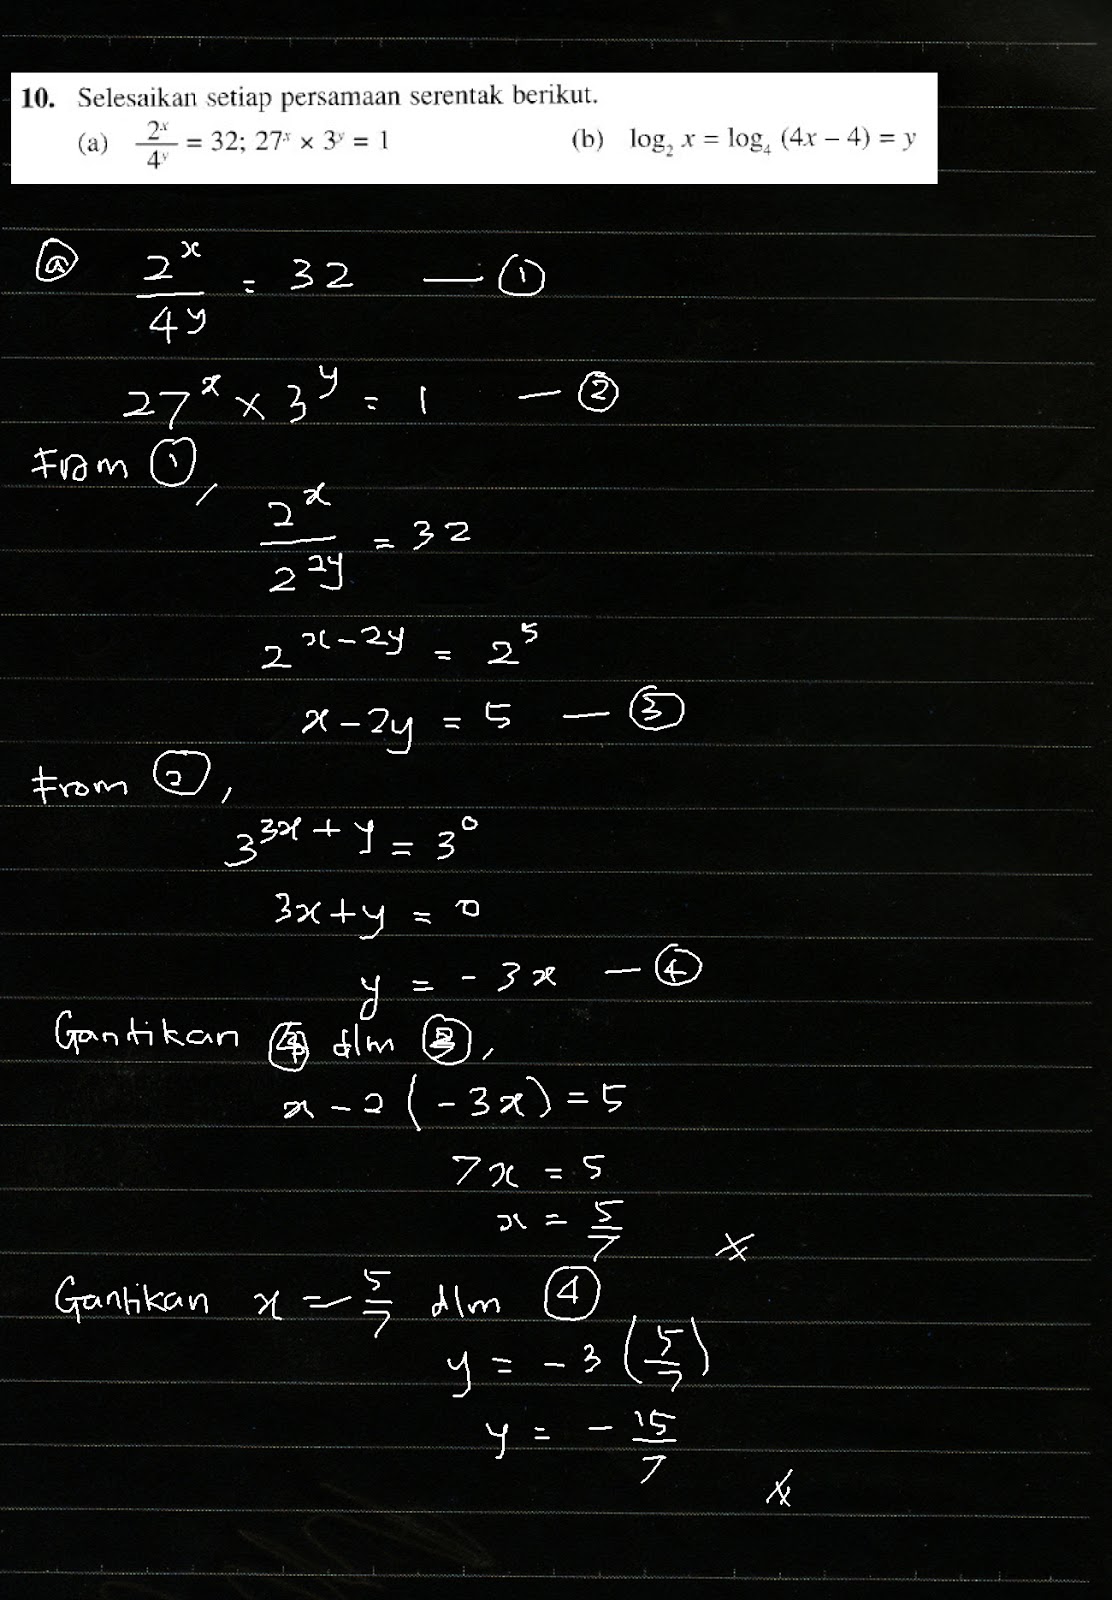 10. Selesaikan setiap persamaan serentak berikut.
(a) 2^x/4^y = 32; 27^x × 3^y = 1 (b) log₂ x = log₄ (4x – 4) = y
ⓐ 2^x/4^y = 32 — ①
27^x × 3^y = 1 — ②
From ①,
2^x/2^2y = 32
2^x-2y = 2^5
x - 2y = 5 — ③
From ②,
3^3x+y = 3^0
3x + y = 0
y = -3x — ④
Gantikan ④ dlm ③,
x - 2(-3x) = 5
7x = 5
x = 5/7
Gantikan x = 5/7 dlm ④
y = -3(5/7)
y = -15/7